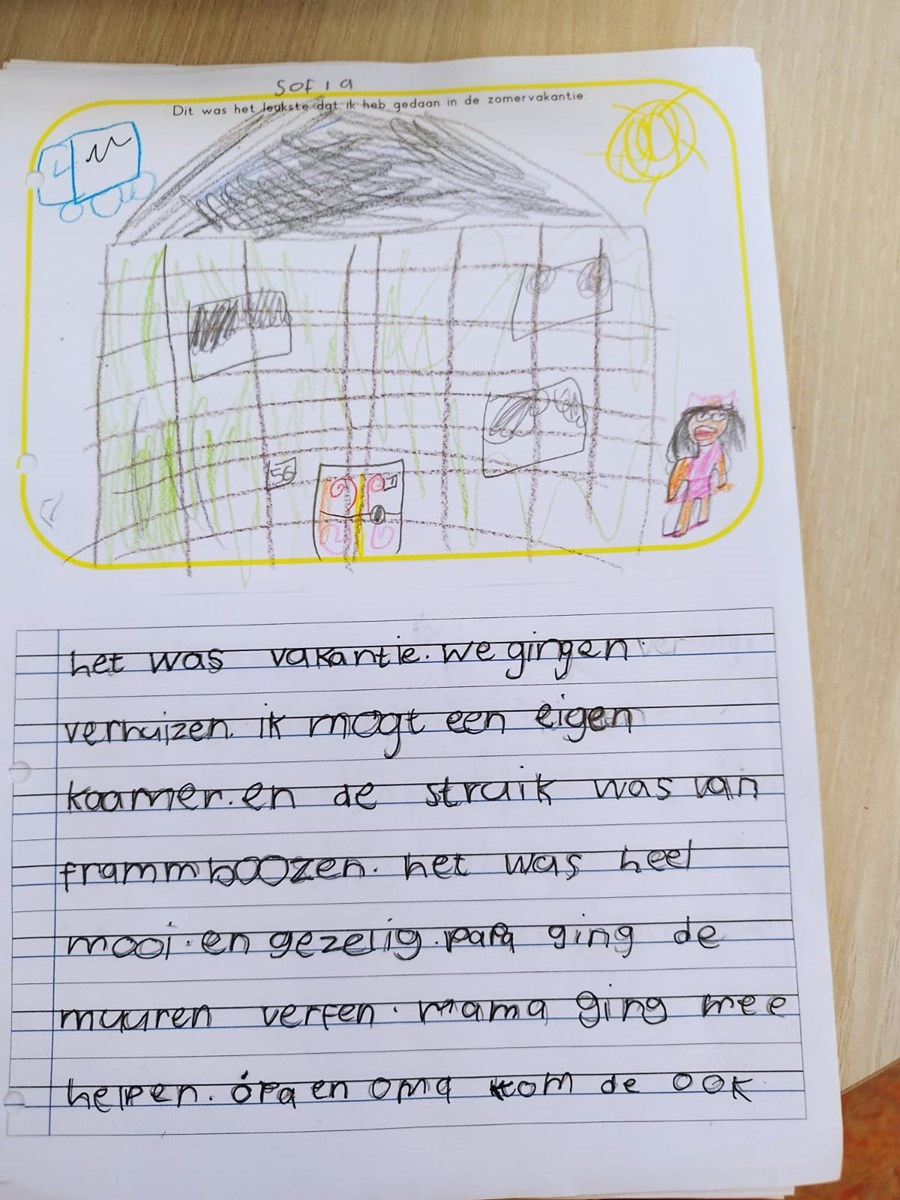 Sofia
Dit was het leukste dat ik heb gedaan in de zomervakantie
56
het was vakantie. we gingen
verhuizen. ik mogt een eigen
kaamer. en de struik was van
frammboozen. het was heel
mooi. en gezelig. papa ging de
muuren verfen. mama ging mee
helpen. opa en oma kom de ook